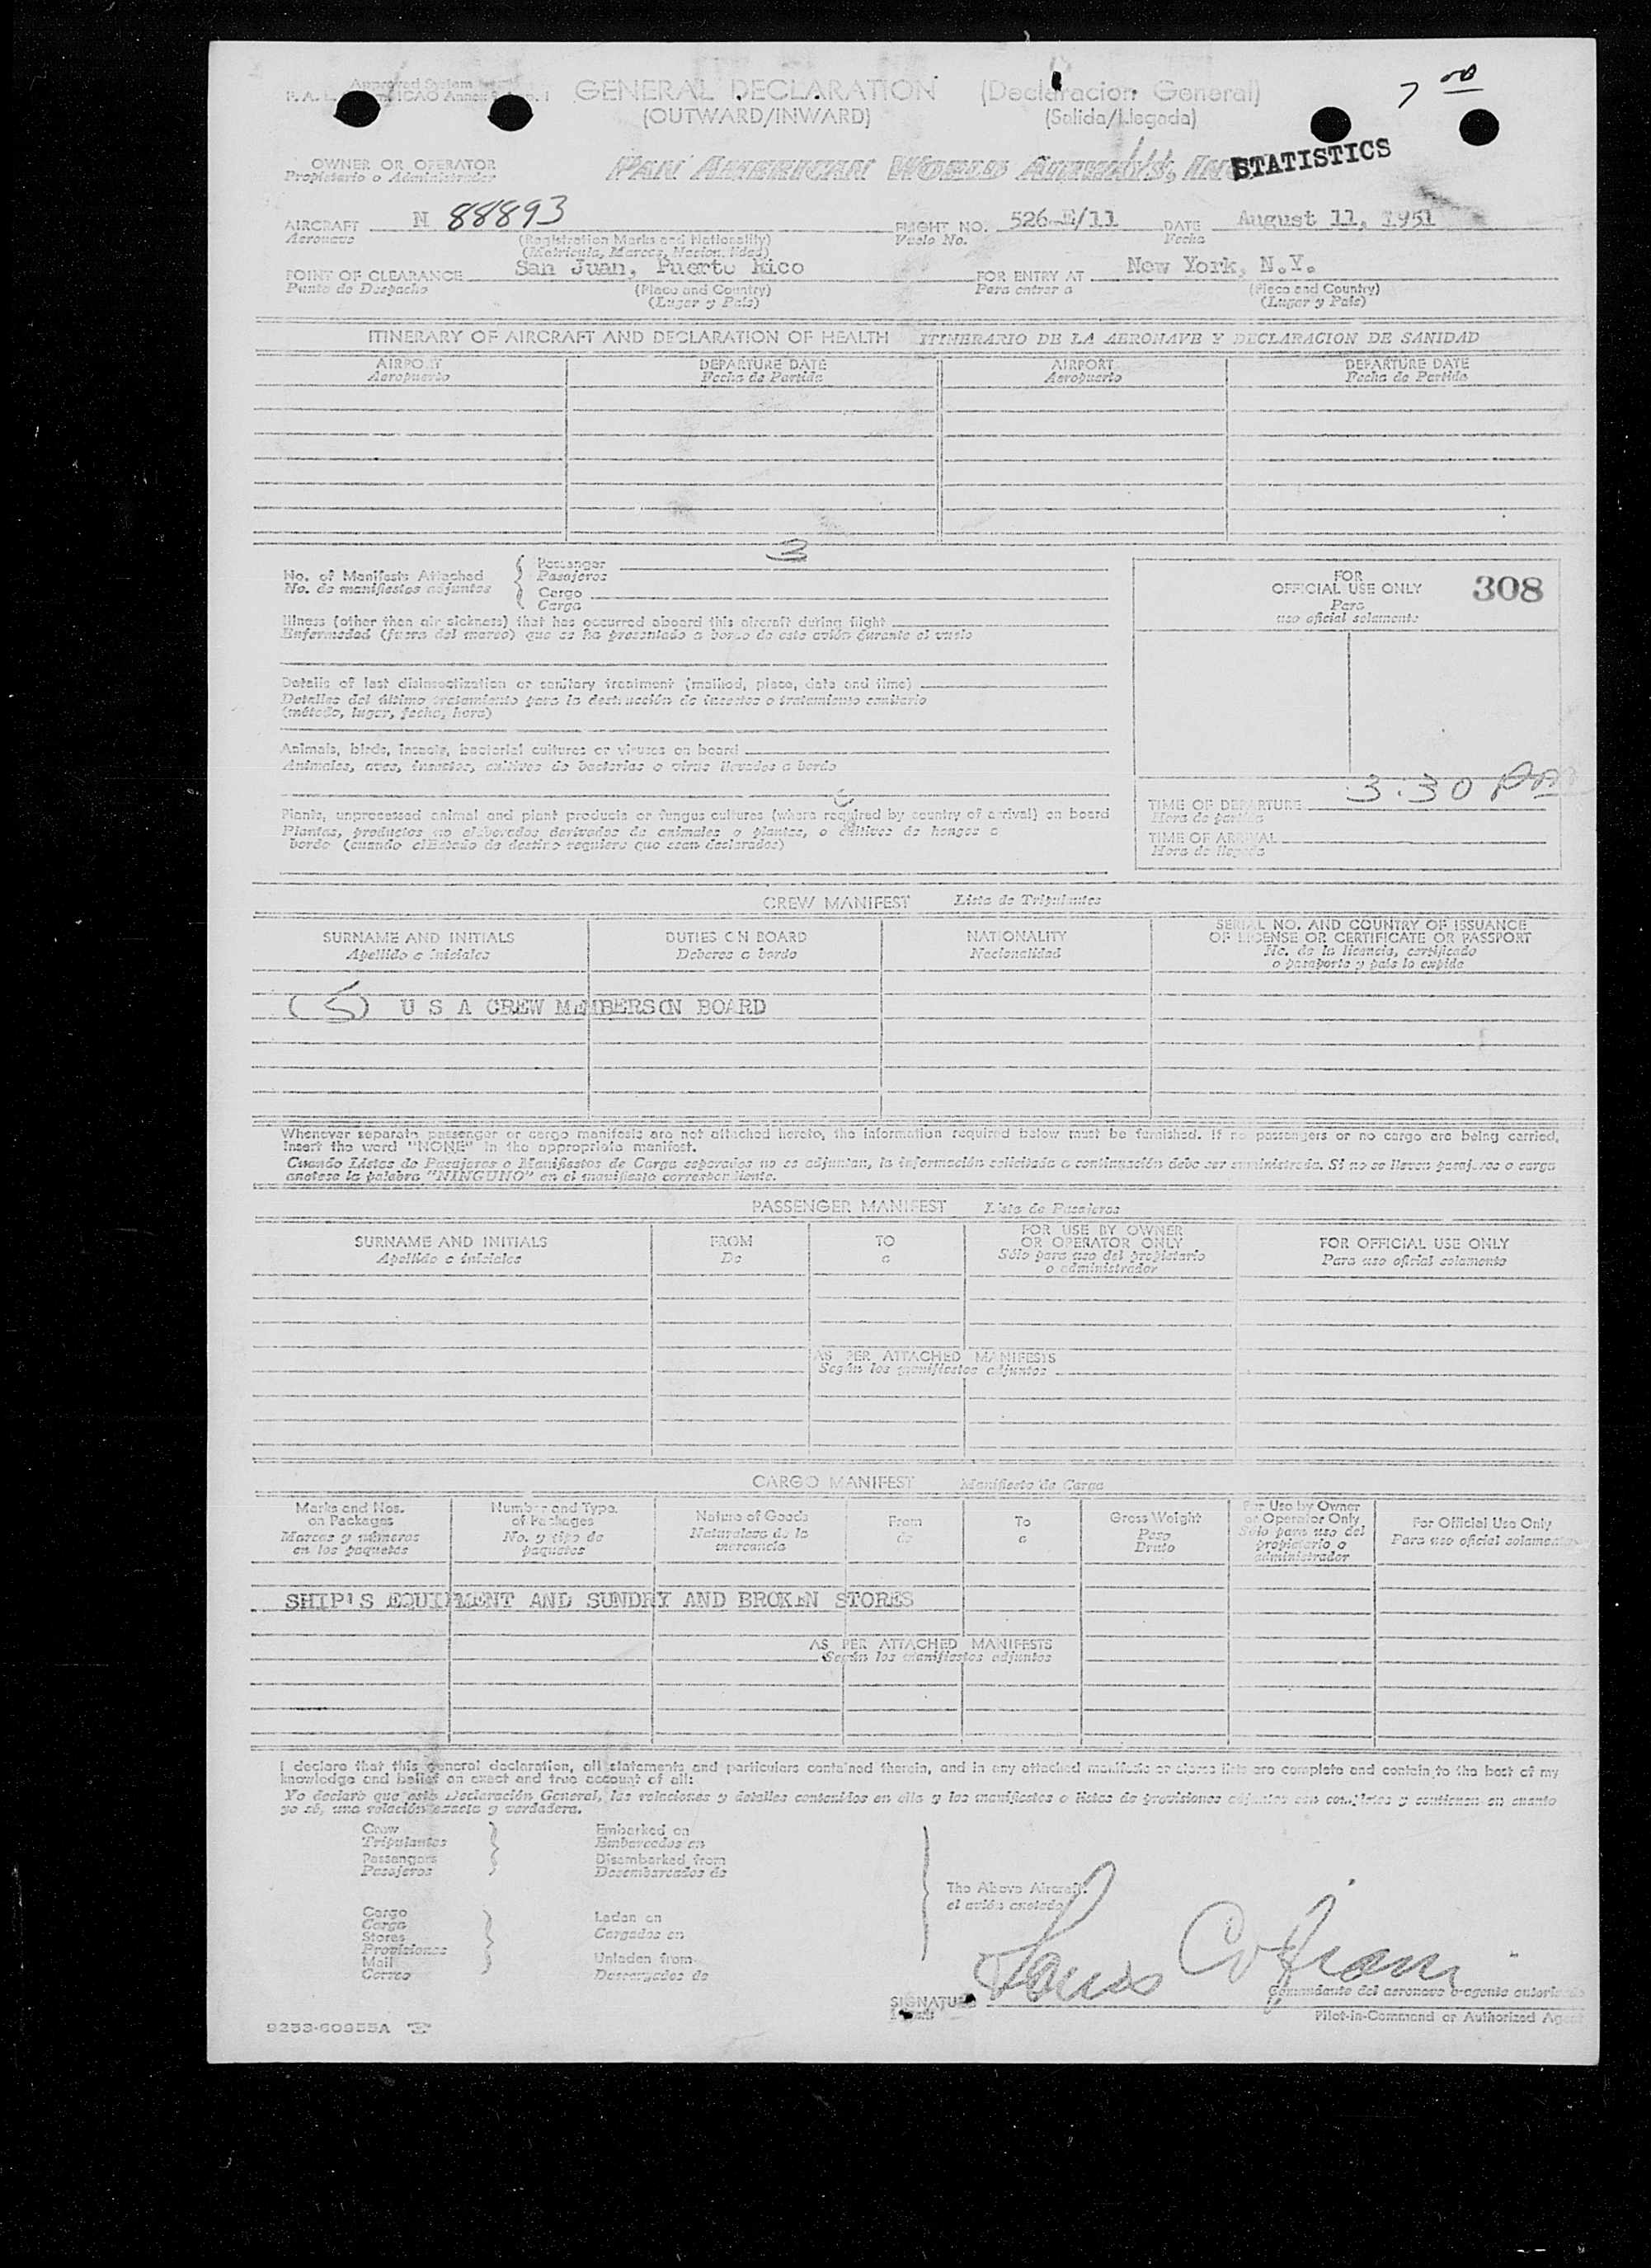 Approved System
GENERAL DECLARATION (Declaracion General)
(OUTWARD/INWARD) (Salida/Llegada)
7 00
OWNER OR OPERATOR
Propietario o Administrador
PAN AMERICAN WORLD AIRWAYS, INC.
STATISTICS
AIRCRAFT N 88893 FLIGHT NO. 526-E/11 DATE August 11, 1951
Aeronave (Registration Marks and Nationality) Vuelo No. Fecha
(Matricula, Marcas, Nacionalidad)
POINT OF CLEARANCE San Juan, Puerto Rico FOR ENTRY AT New York, N.Y.
Punto de Despacho (Place and Country) Para entrar a (Place and Country)
(Lugar y Pais) (Lugar y Pais)
ITINERARY OF AIRCRAFT AND DECLARATION OF HEALTH ITINERARIO DE LA AERONAVE Y DECLARACION DE SANIDAD
AIRPORT DEPARTURE DATE AIRPORT DEPARTURE DATE
Aeropuerto Fecha de Partida Aeropuerto Fecha de Partida
No. of Manifests Attached
No. de manifiestos adjuntos
Passenger 3
Pasajeros
Cargo
Carga
FOR
OFFICIAL USE ONLY 308
Para
uso oficial solamente
Illness (other than air sickness) that has occurred aboard this aircraft during flight
Enfermedad (fuera del mareo) que se ha presentado a bordo de este avión durante el vuelo
Details of last disinsectization or sanitary treatment (method, place, date and time)
Detalles del último tratamiento para la destrucción de insectos o tratamiento sanitario
(método, lugar, fecha, hora)
Animals, birds, insects, bacterial cultures or viruses on board
Animales, aves, insectos, cultivos de bacterias o virus llevados a bordo
Plants, unprocessed animal and plant products or fungus cultures (where required by country of arrival) on board
Plantas, productos no elaborados derivados de animales o plantas, o cultivos de hongos a
bordo (cuando el Estado de destino requiera que sean declarados)
TIME OF DEPARTURE 3:30 PM
Hora de partida
TIME OF ARRIVAL
Hora de llegada
CREW MANIFEST Lista de Tripulantes
SURNAME AND INITIALS DUTIES ON BOARD NATIONALITY SERIAL NO. AND COUNTRY OF ISSUANCE
OF LICENSE OR CERTIFICATE OR PASSPORT
Apellido e iniciales Deberes a bordo Nacionalidad No. de la licencia, certificado
o pasaporte y pais lo expide
(5) U S A CREW MEMBERS ON BOARD
Whenever separate passenger or cargo manifests are not attached hereto, the information required below must be furnished. If no passengers or no cargo are being carried,
insert the word "NONE" in the appropriate manifest.
Cuando Listas de Pasajeros o Manifiestos de Carga separados no se adjuntan, la información solicitada a continuación debe ser suministrada. Si no se llevan pasajeros o carga
anotese la palabra "NINGUNO" en el manifiesto correspondiente.
PASSENGER MANIFEST Lista de Pasajeros
SURNAME AND INITIALS FROM TO FOR USE BY OWNER
OR OPERATOR ONLY FOR OFFICIAL USE ONLY
Apellido e iniciales De a Sólo para uso del propietario
o administrador Para uso oficial solamente
AS PER ATTACHED MANIFESTS
Según los manifiestos adjuntos
CARGO MANIFEST Manifiesto de Carga
Marks and Nos.
on Packages
Marcas y números
en los paquetes
Number and Type
of Packages
No. y tipo de
paquetes
Nature of Goods
Naturaleza de la
mercancía
From
de
To
a
Gross Weight
Peso
Bruto
For Use by Owner
or Operator Only
Sólo para uso del
propietario o
administrador
For Official Use Only
Para uso oficial solamente
SHIP'S EQUIPMENT AND SUNDRY AND BROKEN STORES
AS PER ATTACHED MANIFESTS
Según los manifiestos adjuntos
I declare that this general declaration, all statements and particulars contained therein, and in any attached manifests or stores lists are complete and contain, to the best of my
knowledge and belief an exact and true account of all:
Yo declaro que esta Declaración General, las relaciones y detalles contenidos en ella y los manifiestos o listas de provisiones adjuntos son completos y contienen en cuanto
yo sé, una relación exacta y verdadera.
Crew
Tripulantes
Passengers
Pasajeros
Embarked on
Embarcados en
Disembarked from
Desembarcados de
Cargo
Carga
Stores
Provisiones
Mail
Correo
Laden on
Cargados en
Unladen from
Descargados de
The Above Aircraft
el avión anotado
SIGNATURE Louis
Comandante del aeronave o agente autorizado
Pilot-in-Command or Authorized Agent
9253-60955A